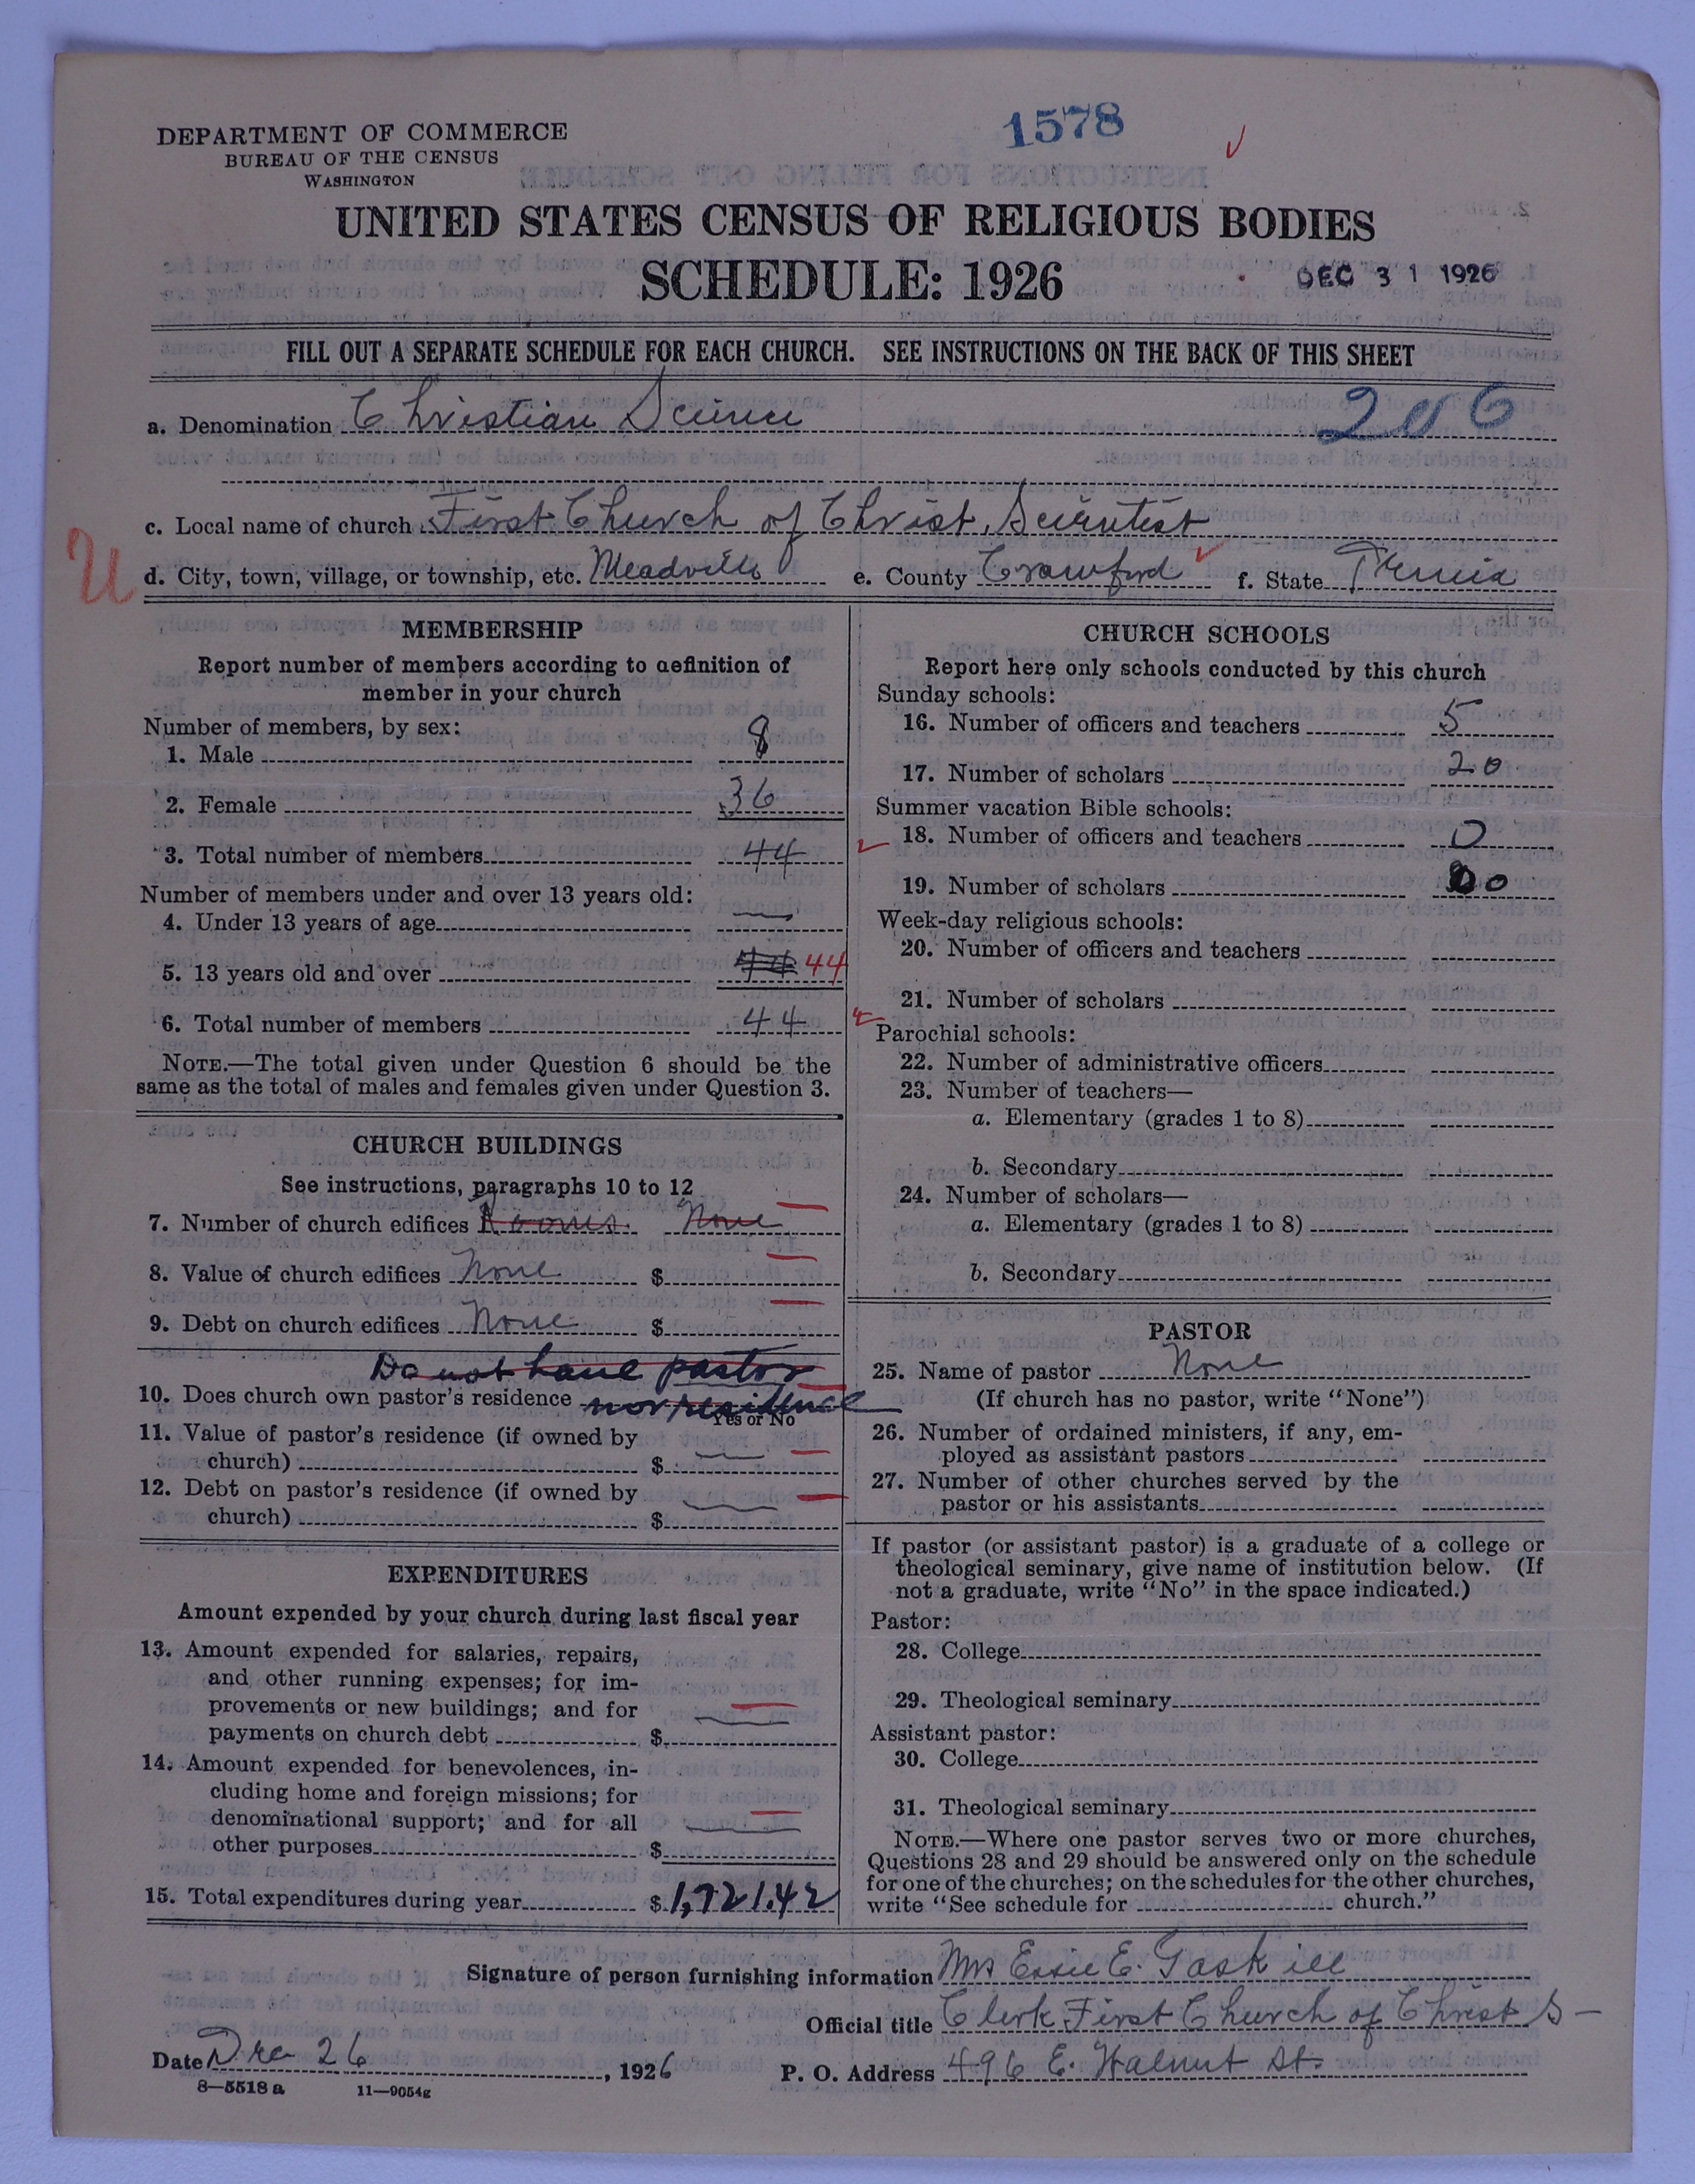 1578
DEPARTMENT OF COMMERCE
BUREAU OF THE CENSUS
WASHINGTON
UNITED STATES CENSUS OF RELIGIOUS BODIES
SCHEDULE: 1926
DEC 31 1926
FILL OUT A SEPARATE SCHEDULE FOR EACH CHURCH. SEE INSTRUCTIONS ON THE BACK OF THIS SHEET
a. Denomination Christian Science 206
c. Local name of church First Church of Christ, Scientist
U
d. City, town, village, or township, etc. Meadville e. County Crawford f. State
MEMBERSHIP
Report number of members according to definition of
member in your church
Number of members, by sex:
1. Male 8
2. Female 36
3. Total number of members 44
Number of members under and over 13 years old:
4. Under 13 years of age —
5. 13 years old and over 44 44
6. Total number of members 44
NOTE.—The total given under Question 6 should be the
same as the total of males and females given under Question 3.
CHURCH BUILDINGS
See instructions, paragraphs 10 to 12
7. Number of church edifices Rooms. None
8. Value of church edifices None $
9. Debt on church edifices None $
Do not have pastor
10. Does church own pastor's residence nor residence
Yes or No
11. Value of pastor's residence (if owned by
church) $ —
12. Debt on pastor's residence (if owned by
church) $ —
EXPENDITURES
Amount expended by your church during last fiscal year
13. Amount expended for salaries, repairs,
and other running expenses; for im-
provements or new buildings; and for
payments on church debt $ —
14. Amount expended for benevolences, in-
cluding home and foreign missions; for
denominational support; and for all
other purposes $ —
15. Total expenditures during year $ 1,721.42
CHURCH SCHOOLS
Report here only schools conducted by this church
Sunday schools:
16. Number of officers and teachers 5
17. Number of scholars 20
Summer vacation Bible schools:
18. Number of officers and teachers 0
19. Number of scholars 0
Week-day religious schools:
20. Number of officers and teachers
21. Number of scholars
Parochial schools:
22. Number of administrative officers
23. Number of teachers—
a. Elementary (grades 1 to 8)
b. Secondary
24. Number of scholars—
a. Elementary (grades 1 to 8)
b. Secondary
PASTOR
25. Name of pastor None
(If church has no pastor, write "None")
26. Number of ordained ministers, if any, em-
ployed as assistant pastors
27. Number of other churches served by the
pastor or his assistants
If pastor (or assistant pastor) is a graduate of a college or
theological seminary, give name of institution below. (If
not a graduate, write "No" in the space indicated.)
Pastor:
28. College
29. Theological seminary
Assistant pastor:
30. College
31. Theological seminary
NOTE.—Where one pastor serves two or more churches,
Questions 28 and 29 should be answered only on the schedule
for one of the churches; on the schedules for the other churches,
write "See schedule for church."
Signature of person furnishing information Mrs Essie E. Gaskill
Official title Clerk First Church of Christ S—
Date Dec 26, 1926 P. O. Address 496 E. Walnut St.
8—5518 a 11—9054g